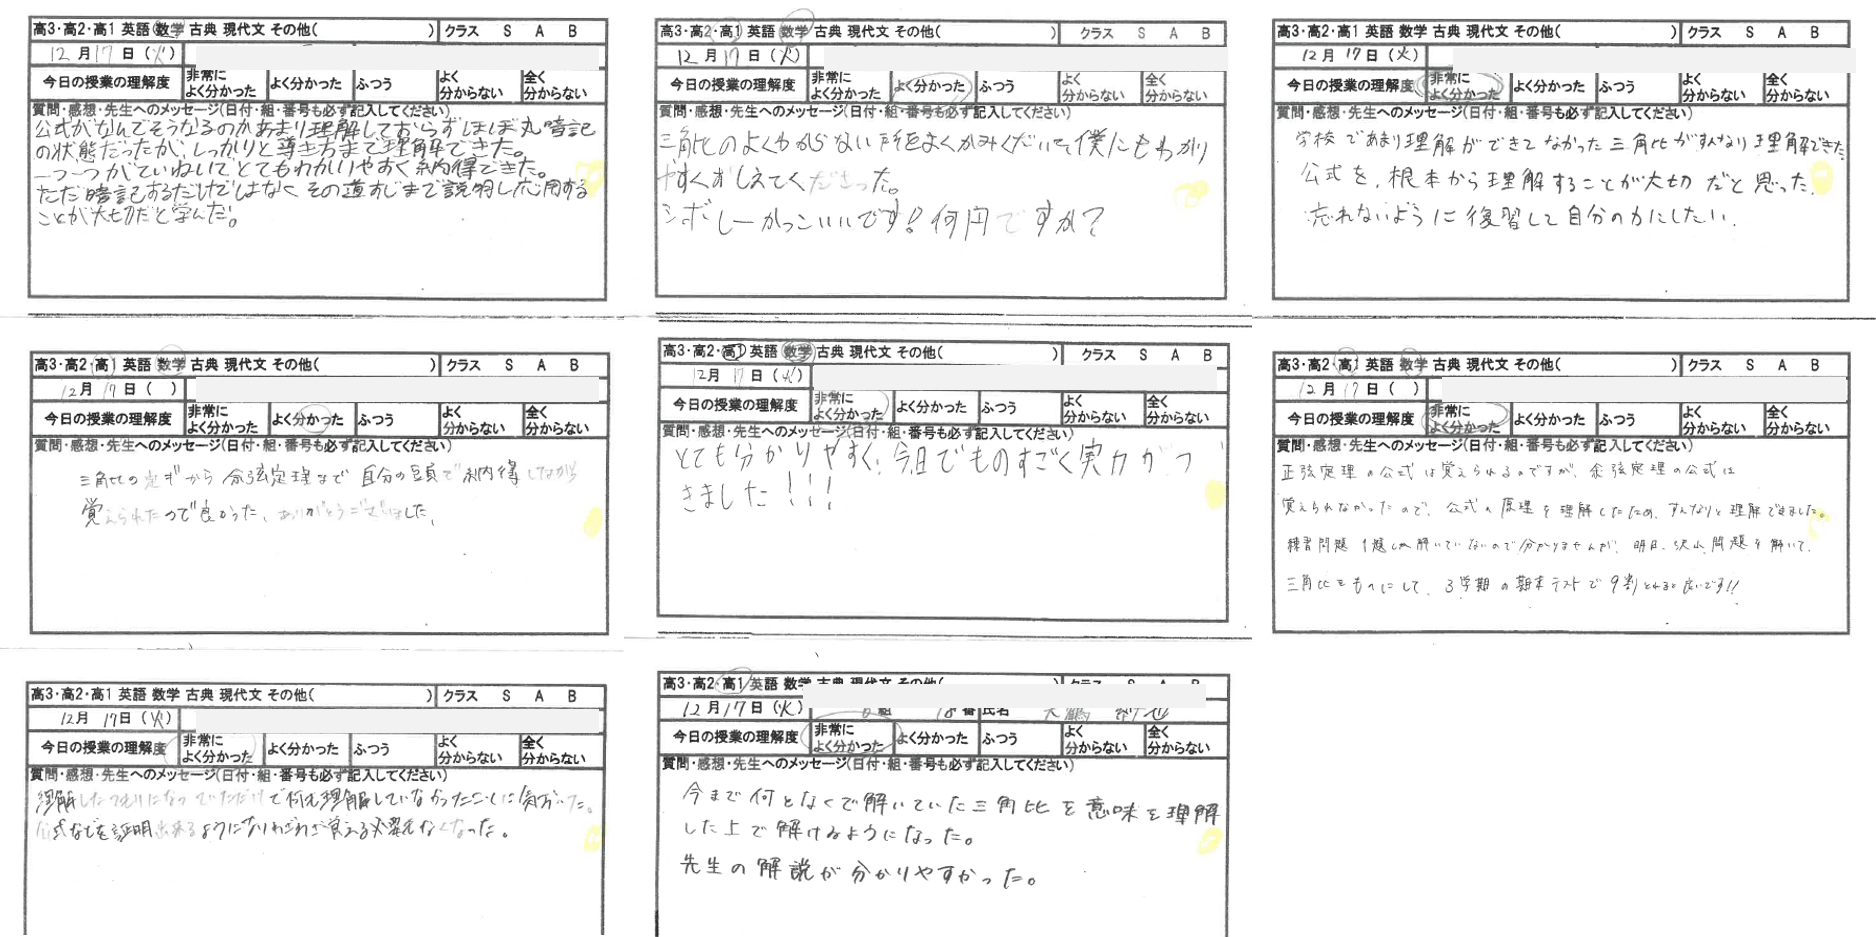 高3・高2・高1 英語 数学 古典 現代文 その他( ) クラス S A B
12月17日(火)
今日の授業の理解度 非常によく分かった よく分かった ふつう よく分からない 全く分からない
質問・感想・先生へのメッセージ(日付・組・番号も必ず記入してください)
公式がなんでそうなるのかあまり理解しておらずほぼ丸暗記
の状態だったが、しっかりと導き方まで理解できた。
一つ一つがていねいでとてもわかりやすく納得できた。
ただ暗記するだけではなくその道すじまで説明し応用する
ことが大切だと学んだ。
高3・高2・高1 英語 数学 古典 現代文 その他( ) クラス S A B
12月17日(火)
今日の授業の理解度 非常によく分かった よく分かった ふつう よく分からない 全く分からない
質問・感想・先生へのメッセージ(日付・組・番号も必ず記入してください)
三角比のよくわからない所をよくかみくだいて僕にもわかり
やすくおしえてくださった。
シボレーかっこいいです!何円ですか?
高3・高2・高1 英語 数学 古典 現代文 その他( ) クラス S A B
12月17日(火)
今日の授業の理解度 非常によく分かった よく分かった ふつう よく分からない 全く分からない
質問・感想・先生へのメッセージ(日付・組・番号も必ず記入してください)
学校であまり理解ができてなかった三角比がすんなり理解できた
公式を、根本から理解することが大切だと思った。
忘れないように復習して自分の力にしたい。
高3・高2・高1 英語 数学 古典 現代文 その他( ) クラス S A B
12月17日( )
今日の授業の理解度 非常によく分かった よく分かった ふつう よく分からない 全く分からない
質問・感想・先生へのメッセージ(日付・組・番号も必ず記入してください)
三角比の定義から余弦定理まで自分の頭で納得しながら
覚えられたので良かった。ありがとうございました。
高3・高2・高1 英語 数学 古典 現代文 その他( ) クラス S A B
12月17日(火)
今日の授業の理解度 非常によく分かった よく分かった ふつう よく分からない 全く分からない
質問・感想・先生へのメッセージ(日付・組・番号も必ず記入してください)
とても分かりやすく、今日でものすごく実力がつ
きました!!!
高3・高2・高1 英語 数学 古典 現代文 その他( ) クラス S A B
12月17日( )
今日の授業の理解度 非常によく分かった よく分かった ふつう よく分からない 全く分からない
質問・感想・先生へのメッセージ(日付・組・番号も必ず記入してください)
正弦定理の公式は覚えられるのですが、余弦定理の公式は
覚えられなかったので、公式の原理を理解したため、すんなりと理解できました。
練習問題1題しか解いていないので分かりませんが、明日、沢山問題を解いて、
三角比をものにして、3学期の期末テストで9割とれると良いです!!
高3・高2・高1 英語 数学 古典 現代文 その他( ) クラス S A B
12月17日(火)
今日の授業の理解度 非常によく分かった よく分かった ふつう よく分からない 全く分からない
質問・感想・先生へのメッセージ(日付・組・番号も必ず記入してください)
理解したつもりになっていただけで何も理解していなかったことに気づいた。
公式などを証明出来るようになりわざわざ覚える必要がなくなった。
高3・高2・高1 英語 数学 古典 現代文 その他( クラス S A B
12月17日(火) 組 18番 氏名
今日の授業の理解度 非常によく分かった よく分かった ふつう よく分からない 全く分からない
質問・感想・先生へのメッセージ(日付・組・番号も必ず記入してください)
今まで何となくで解いていた三角比を意味を理解
した上で解けるようになった。
先生の解説が分かりやすかった。